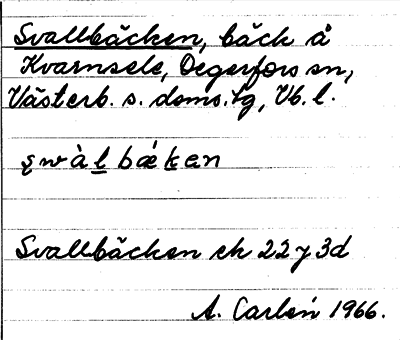 Svallbäcken, bäck å
Kvarnsele, Degerfors sn,
Västerb. s. doms.tg, Vb. l.
s̨wàl̲bǽk̲en
Svallbäcken ek 22 7 3d
A. Carlén 1966.